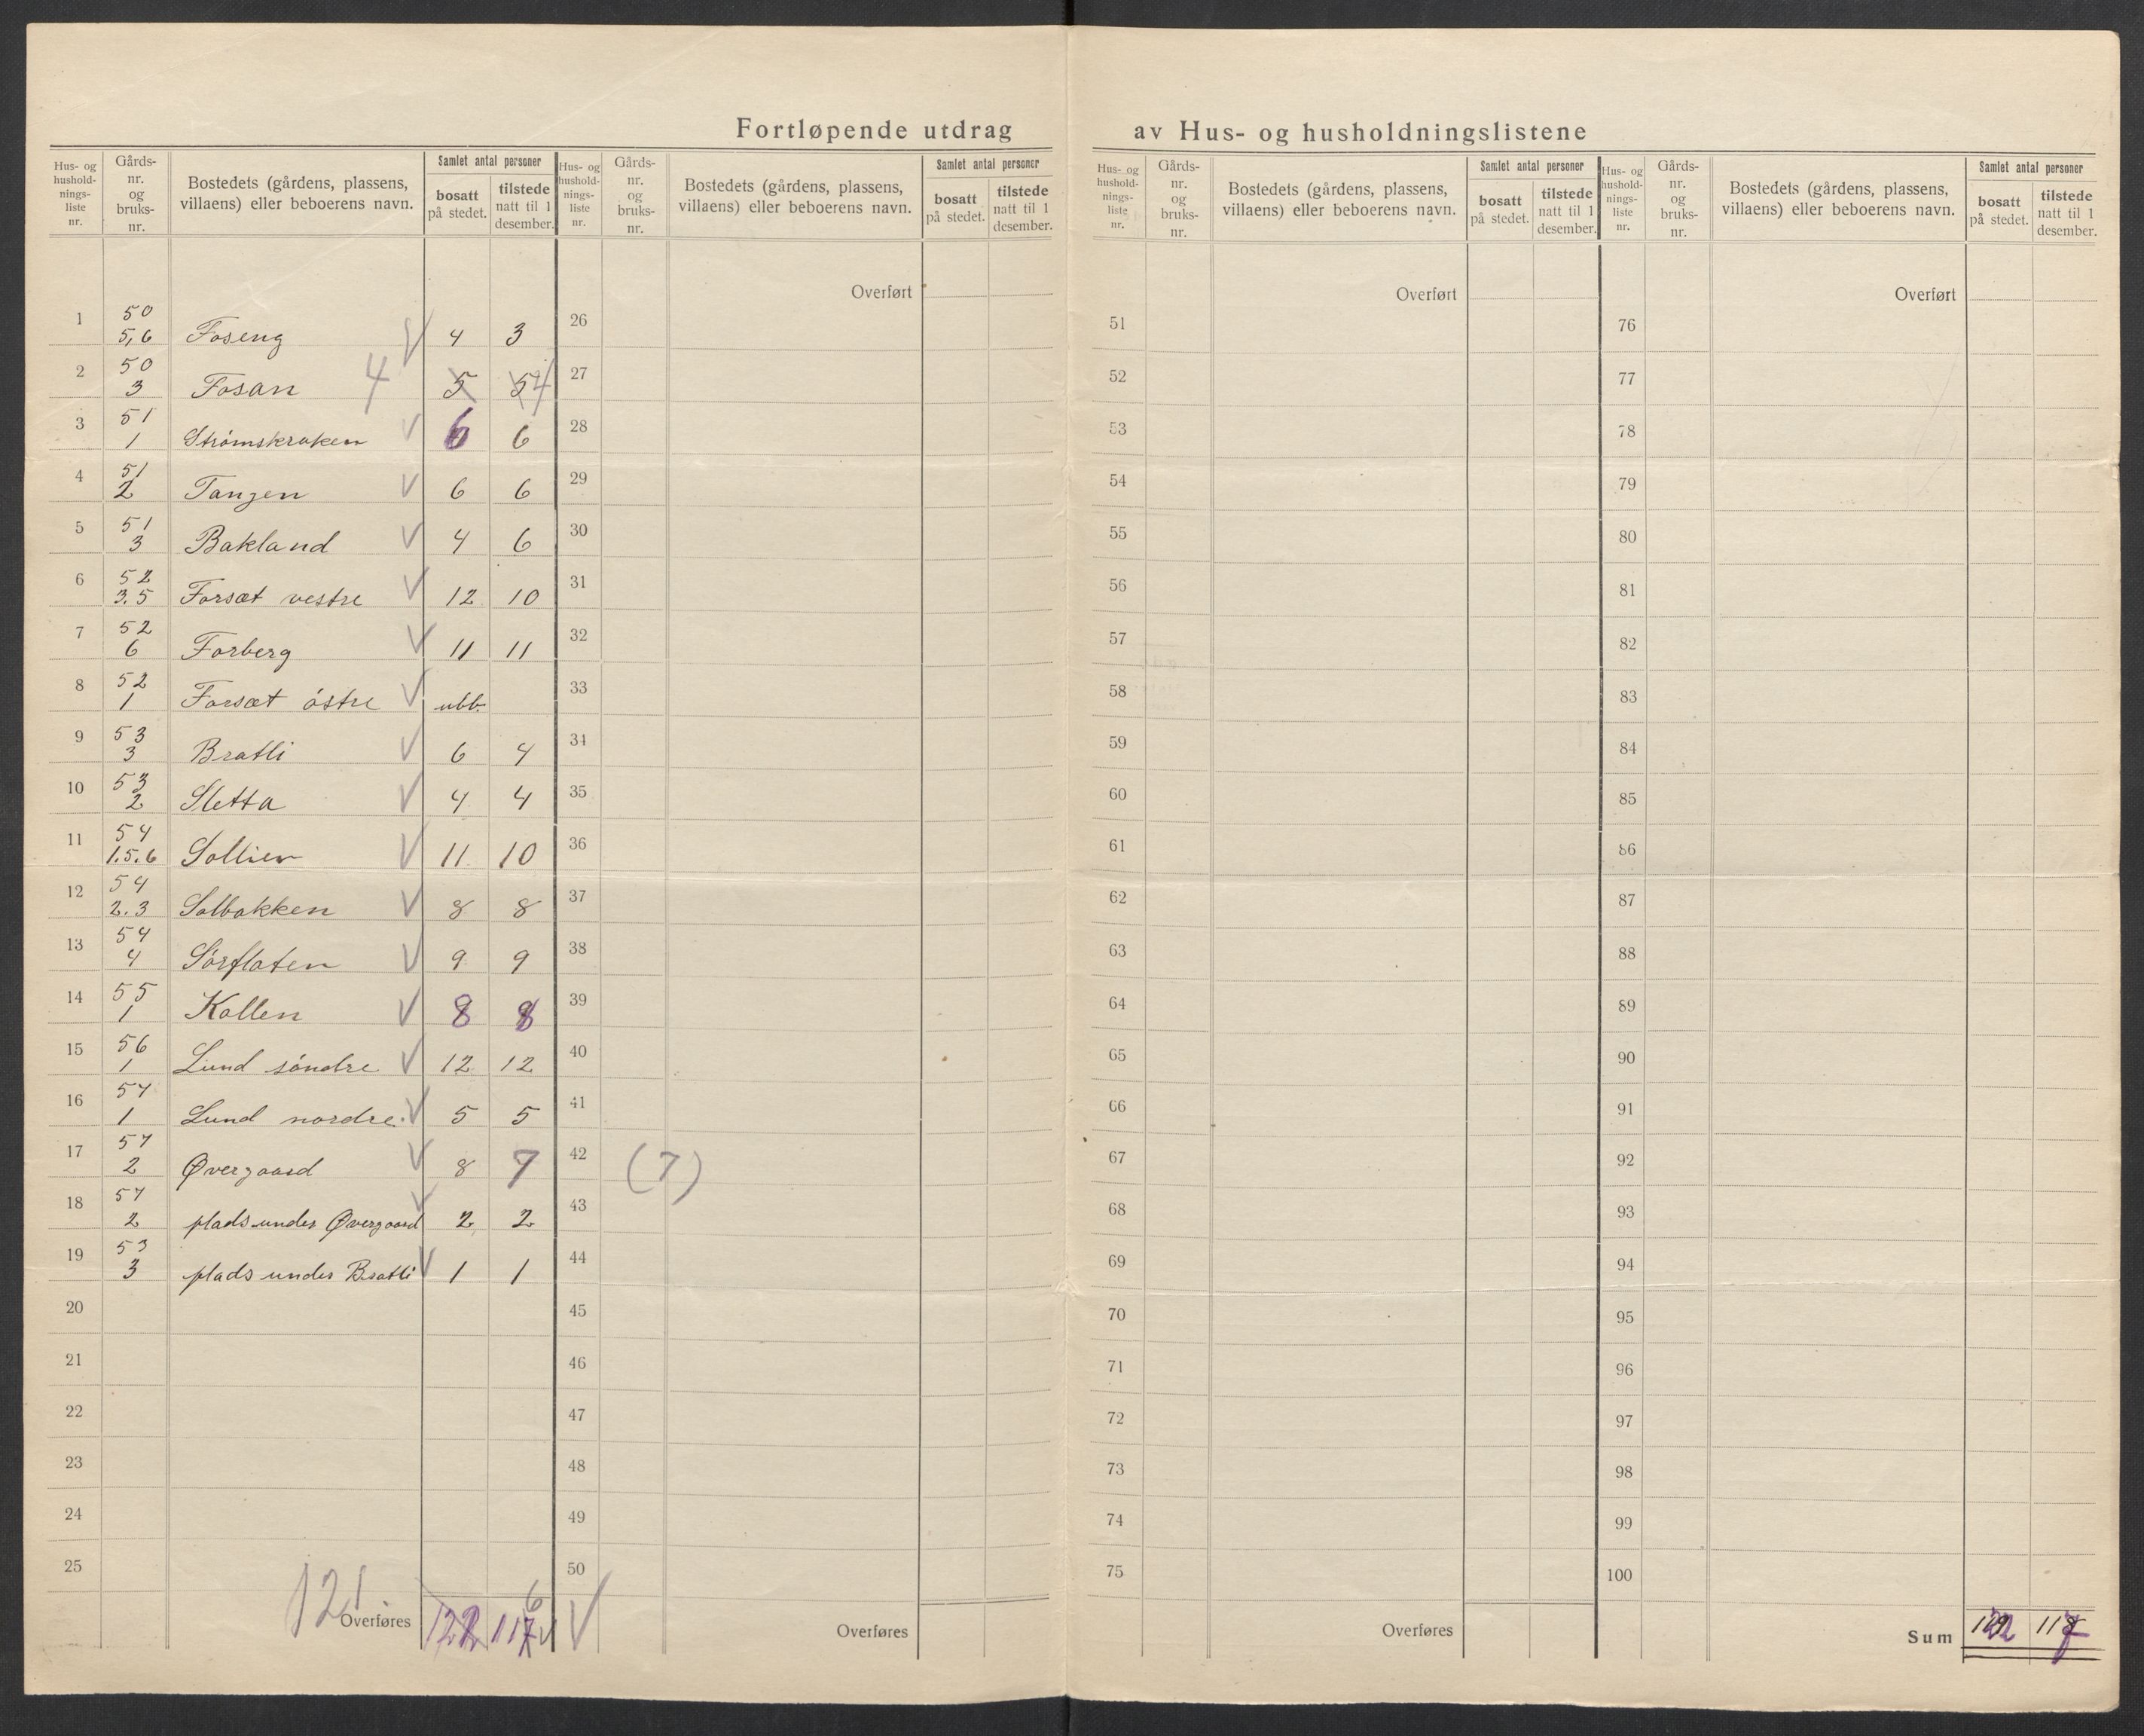 Fortløpende utdrag av Hus- og husholdningslistene
Hus- og husholdningsliste nr. | Gårds-nr. og bruks-nr. | Bostedets (gårdens, plassens, villaens) eller beboerens navn. | Samlet antal personer | bosatt på stedet. | tilstede natt til 1 desember.
Hus- og husholdningsliste nr. | Gårds-nr. og bruks-nr. | Bostedets (gårdens, plassens, villaens) eller beboerens navn. | Samlet antal personer | bosatt på stedet. | tilstede natt til 1 desember.
Hus- og husholdningsliste nr. | Gårds-nr. og bruks-nr. | Bostedets (gårdens, plassens, villaens) eller beboerens navn. | Samlet antal personer | bosatt på stedet. | tilstede natt til 1 desember.
Hus- og husholdningsliste nr. | Gårds-nr. og bruks-nr. | Bostedets (gårdens, plassens, villaens) eller beboerens navn. | Samlet antal personer | bosatt på stedet. | tilstede natt til 1 desember.
1 50 5,6 Foseng V 4 3
2 50 3 Fosan 4 5 5 4
3 51 1 Strömskraken V 6 6
4 51 2 Tangen V 6 6
5 51 3 Bakland V 4 6
6 52 3.5 Forsæt vestre V 12 10
7 52 6 Forberg V 11 11
8 52 1 Forsæt östre V ubb.
9 53 3 Bratli V 6 4
10 53 2 Sletta V 4 4
11 54 1.5.6 Sollien V 11 10
12 54 2.3 Solbakken V 8 8
13 54 4 Sörflaten V 9 9
14 55 1 Kollen V 8 8
15 56 1 Lund söndre V 12 12
16 57 1 Lund nordre. V 5 5
17 57 2 Øvergaard V 8 7
18 57 2 plads under Øvergaard V 2 2
19 53 3 plads under Bratli V 1 1
20
21
22
23
24
25
121 Overføres 122 117 6 V
Overført
26
27
28
29
30
31
32
33
34
35
36
37
38
39
40
41
42 (7)
43
44
45
46
47
48
49
50
Overføres
Overført
51
52
53
54
55
56
57
58
59
60
61
62
63
64
65
66
67
68
69
70
71
72
73
74
75
Overføres
Overført
76
77
78
79
80
81
82
83
84
85
86
87
88
89
90
91
92
93
94
95
96
97
98
99
100
Sum